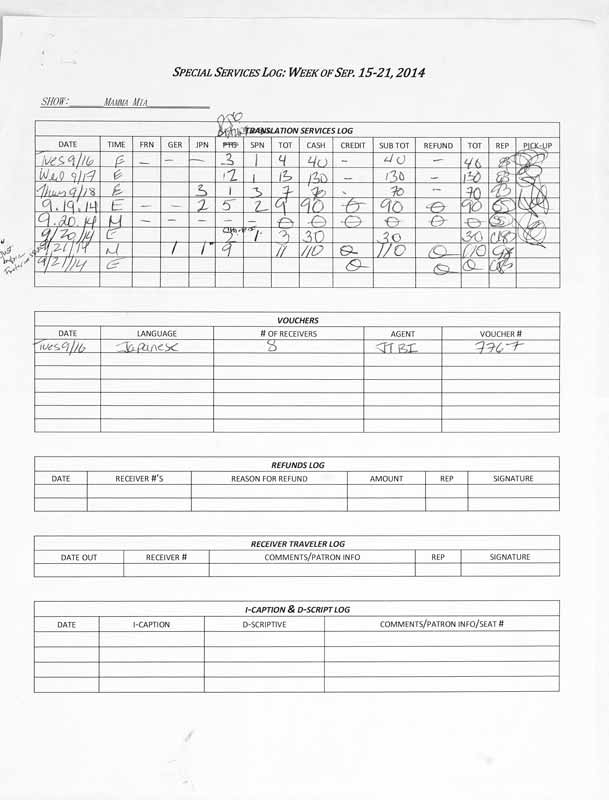 SPECIAL SERVICES LOG: WEEK OF SEP. 15-21, 2014
SHOW: MAMMA MIA
TRANSLATION SERVICES LOG
DATE TIME FRN GER JPN PTG SPN TOT CASH CREDIT SUB TOT REFUND TOT REP PICK-UP
Tues 9/16 E – – – 3 1 4 40 – 40 – 40
Wed 9/17 E 12 1 13 130 – 130 – 130
Thurs 9/18 E 3 1 3 7 70 – 70 – 70
9.19.14 E – – 2 5 2 9 90 0 90 0 90
9.20.14 M – – – – – 0 0 0 0 0 0
9/20/14 E 2 1 3 30 30 30 CB
9/21/14 M 1 1 9 11 110 0 110 0 110 CB
9/21/14 E 0 0 0 CB
VOUCHERS
DATE LANGUAGE # OF RECEIVERS AGENT VOUCHER #
Tues 9/16 Japanese 8 JTBI 7767
REFUNDS LOG
DATE RECEIVER #'S REASON FOR REFUND AMOUNT REP SIGNATURE
RECEIVER TRAVELER LOG
DATE OUT RECEIVER # COMMENTS/PATRON INFO REP SIGNATURE
I-CAPTION & D-SCRIPT LOG
DATE I-CAPTION D-SCRIPTIVE COMMENTS/PATRON INFO/SEAT #